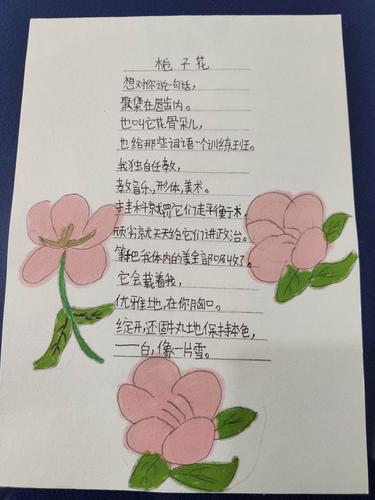 栀子花
想对你说一句话，
聚集在唇齿内。
也叫它花骨朵儿，
也给那些词语一个训练班。
我独自任教，
教音乐，形体，美术。
它们走平衡术。
顽劣就天天给它们讲政治。
等把我体内的美全部吸收了。
它会载着我，
优雅地，在你胸口。
绽开，还固执地保持本色，
——白，像一片雪。